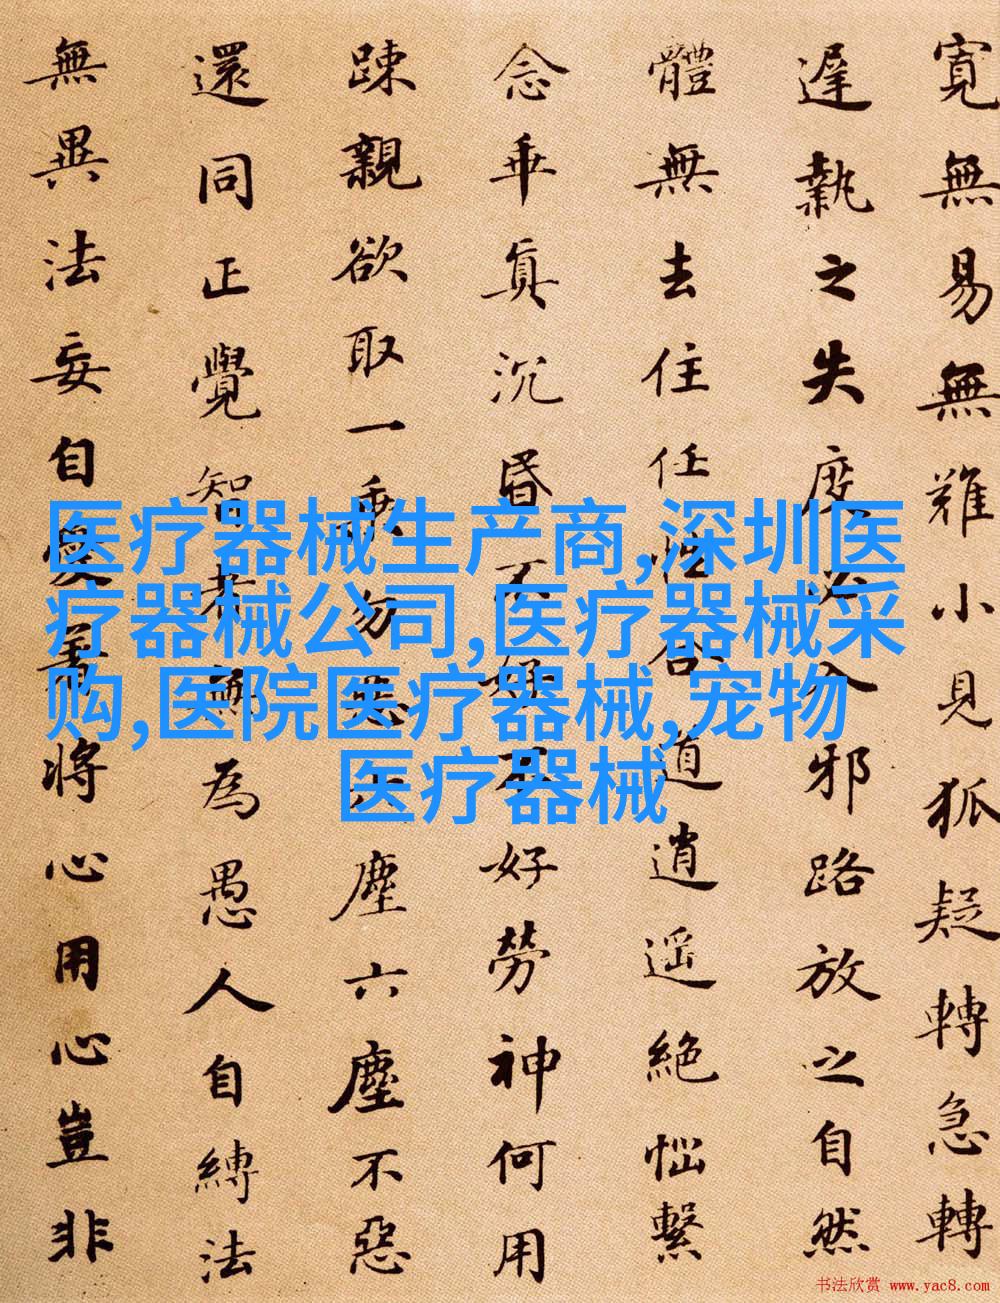 寬無易無難小見狐疑轉急轉
遲執之失度必入邪路放之自然
體無去住任性合道逍遥絕惱繫
念乖真沉昏不好不好勞神何用
踈親欲取一乘勿惡六塵六塵不惡
還同正覺智者無為愚人自縛法
無異法妄自愛著將心用心豈非
医疗器械生产商,深圳医
疗器械公司,医疗器械采
购,医院医疗器械,宠物
医疗器械
书法欣赏 www.yac8.com